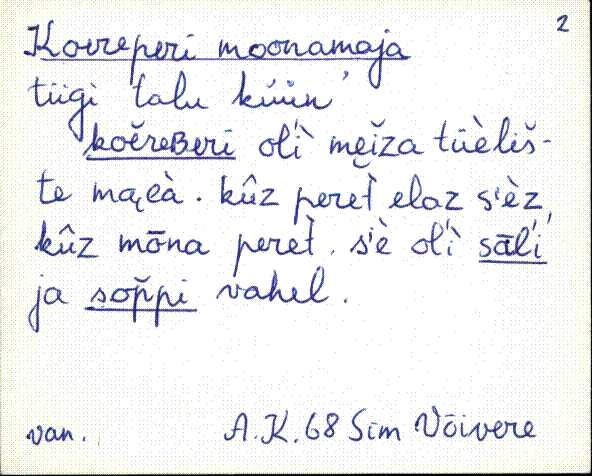 2
Koereperi moonamaja
tiigi talu küün
koĕreʙeri oĺì meĭza tüèliš-
te maɛà. kûz peret̀ elaz śèz,
kûz mōna peret̀. śè oĺì sāĺi
ja sop̆pi vahel.
van. A.K. 68 Sim Võivere